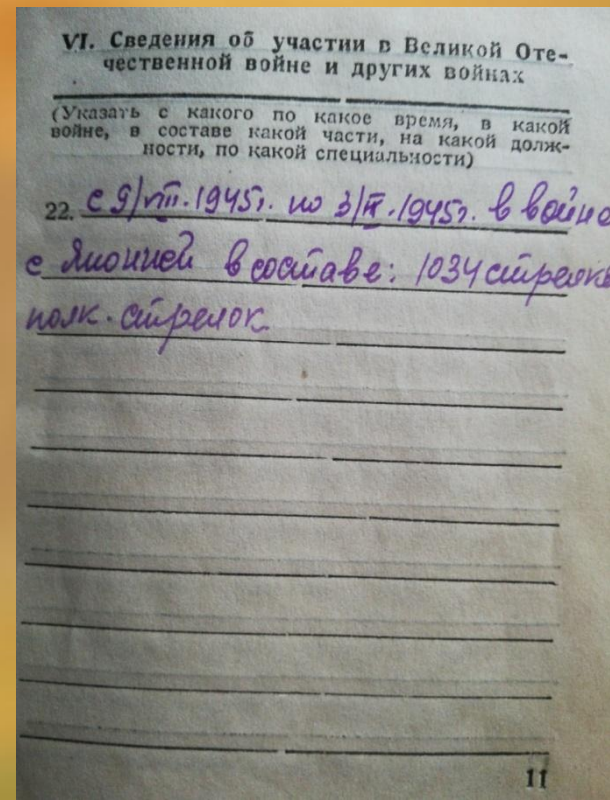 VI. Сведения об участии в Великой Оте-
чественной войне и других войнах
(Указать с какого по какое время, в какой
войне, в составе какой части, на какой долж-
ности, по какой специальности)
22. с 9/VIII.1945г. по 3/IX.1945г. в войне
с Японией в составе: 1034 стрелков
полк. стрелок
11